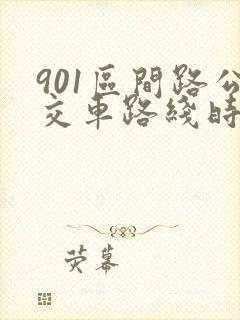 901區間路公
交車路綫時
熒幕